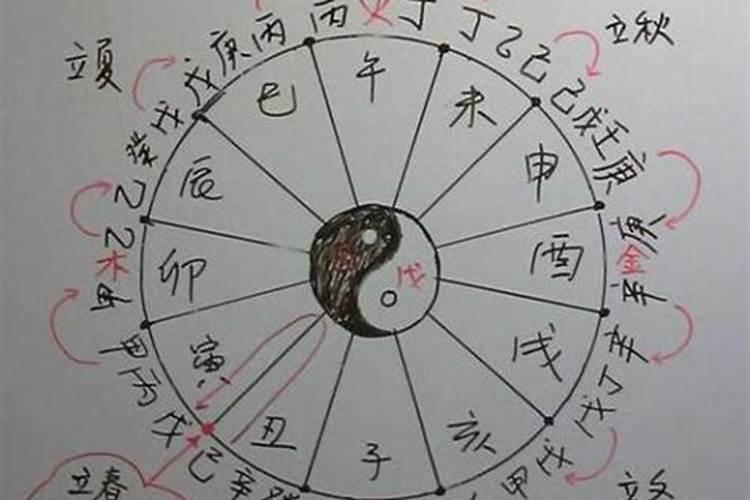 立夏
立秋
立春
戊庚丙
丙火丁
丁乙己
己戊壬庚
庚金辛
辛丁戊
戊甲
乙癸戊
甲木乙
甲丙戊
己辛癸
巳
午
未
申
酉
戌
亥
子
丑
寅
卯
辰
戊